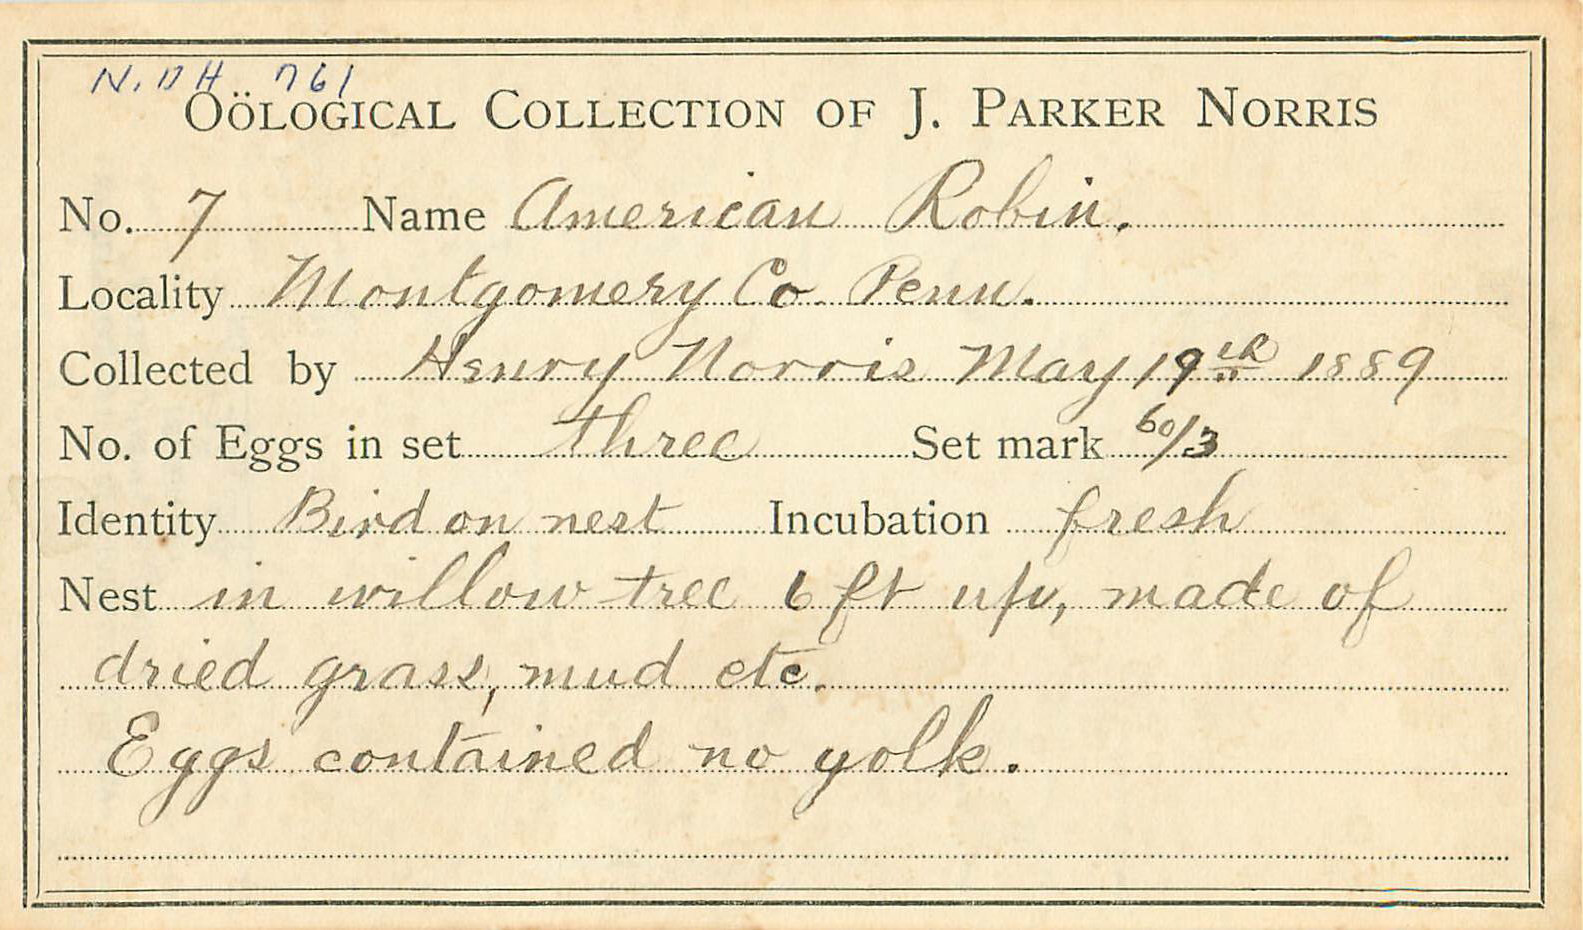 N.D H 761
OÖLOGICAL COLLECTION OF J. PARKER NORRIS
No. 7 Name American Robin.
Locality Montgomery Co. Penn.
Collected by Henry Norris May 19th 1889
No. of Eggs in set three Set mark 60/3
Identity Bird on nest Incubation fresh
Nest in willow tree 6 ft up, made of
dried grass, mud etc.
Eggs contained no yolk.